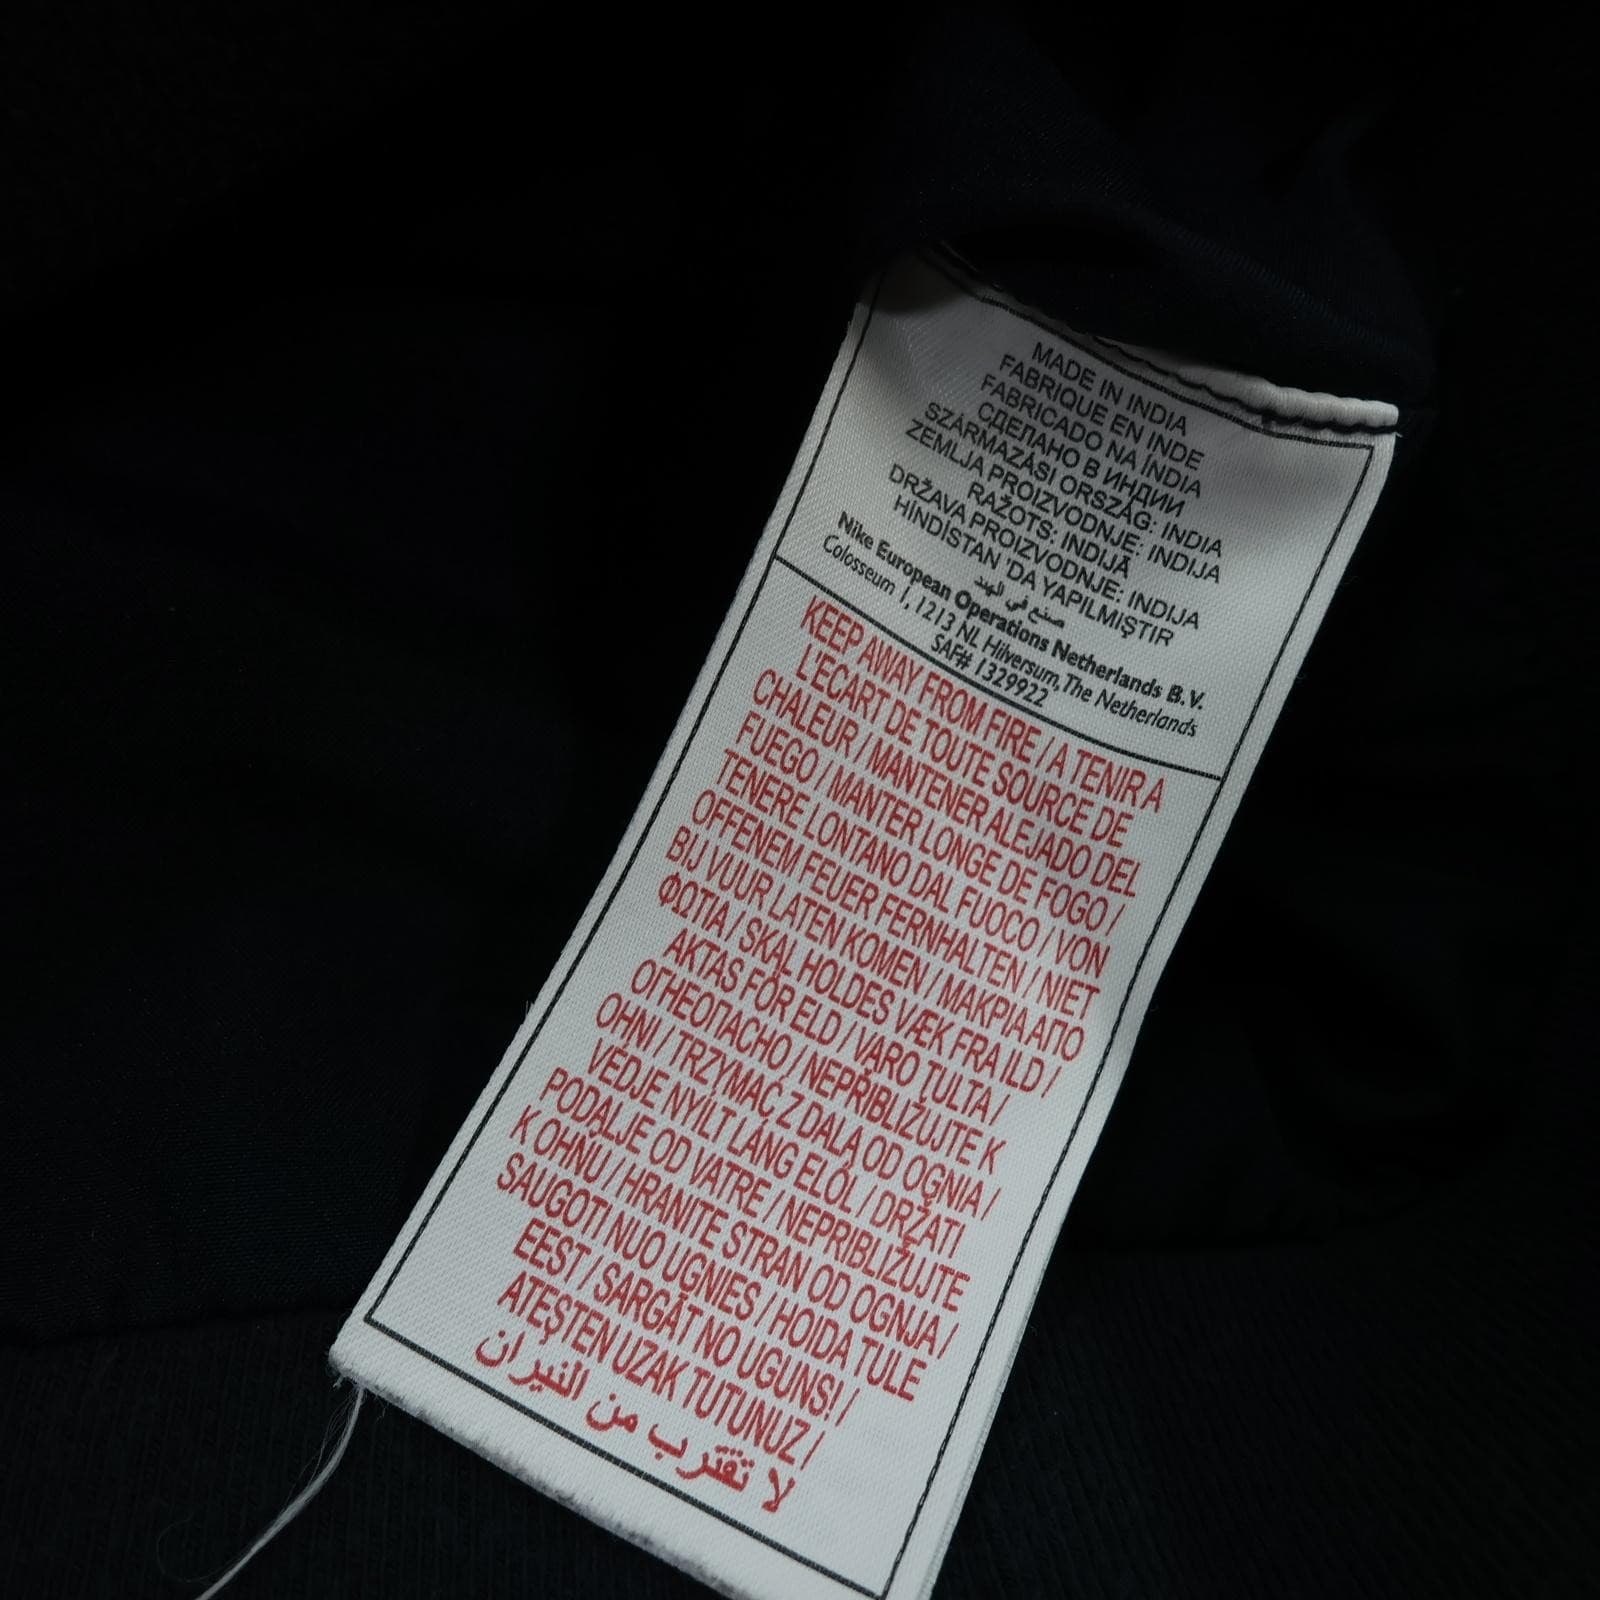 MADE IN INDIA
FABRIQUE EN INDE
FABRICADO NA ÍNDIA
СДЕЛАНО В ИНДИИ
SZÁRMAZÁSI ORSZÁG: INDIA
ZEMLJA PROIZVODNJE: INDIJA
RAŽOTS: INDIJĀ
DRŽAVA PROIZVODNJE: INDIJA
HİNDİSTAN 'DA YAPILMIŞTIR
صنع في الهند
Nike European Operations Netherlands B.V.
Colosseum 1, 1213 NL Hilversum, The Netherlands
SAF# 1329922
KEEP AWAY FROM FIRE / A TENIR A
L'ECART DE TOUTE SOURCE DE
CHALEUR / MANTENER ALEJADO DEL
FUEGO / MANTER LONGE DE FOGO /
TENERE LONTANO DAL FUOCO / VON
OFFENEM FEUER FERNHALTEN / NIET
BIJ VUUR LATEN KOMEN / ΜΑΚΡΙΑ ΑΠΟ
ΦΩΤΙΑ / SKAL HOLDES VÆK FRA ILD /
AKTAS FÖR ELD / VARO TULTA /
ОГНЕОПАСНО / NEPŘIBLIŽUJTE K
OHNI / TRZYMAĆ Z DALA OD OGNIA /
VÉDJE NYÍLT LÁNG ELŐL / DRŽATI
PODALJE OD VATRE / NEPRIBLIŽUJTE
K OHŇU / HRANITE STRAN OD OGNJA /
SAUGOTI NUO UGNIES / HOIDA TULE
EEST / SARGĀT NO UGUNS! /
ATEŞTEN UZAK TUTUNUZ /
لا تقترب من النيران